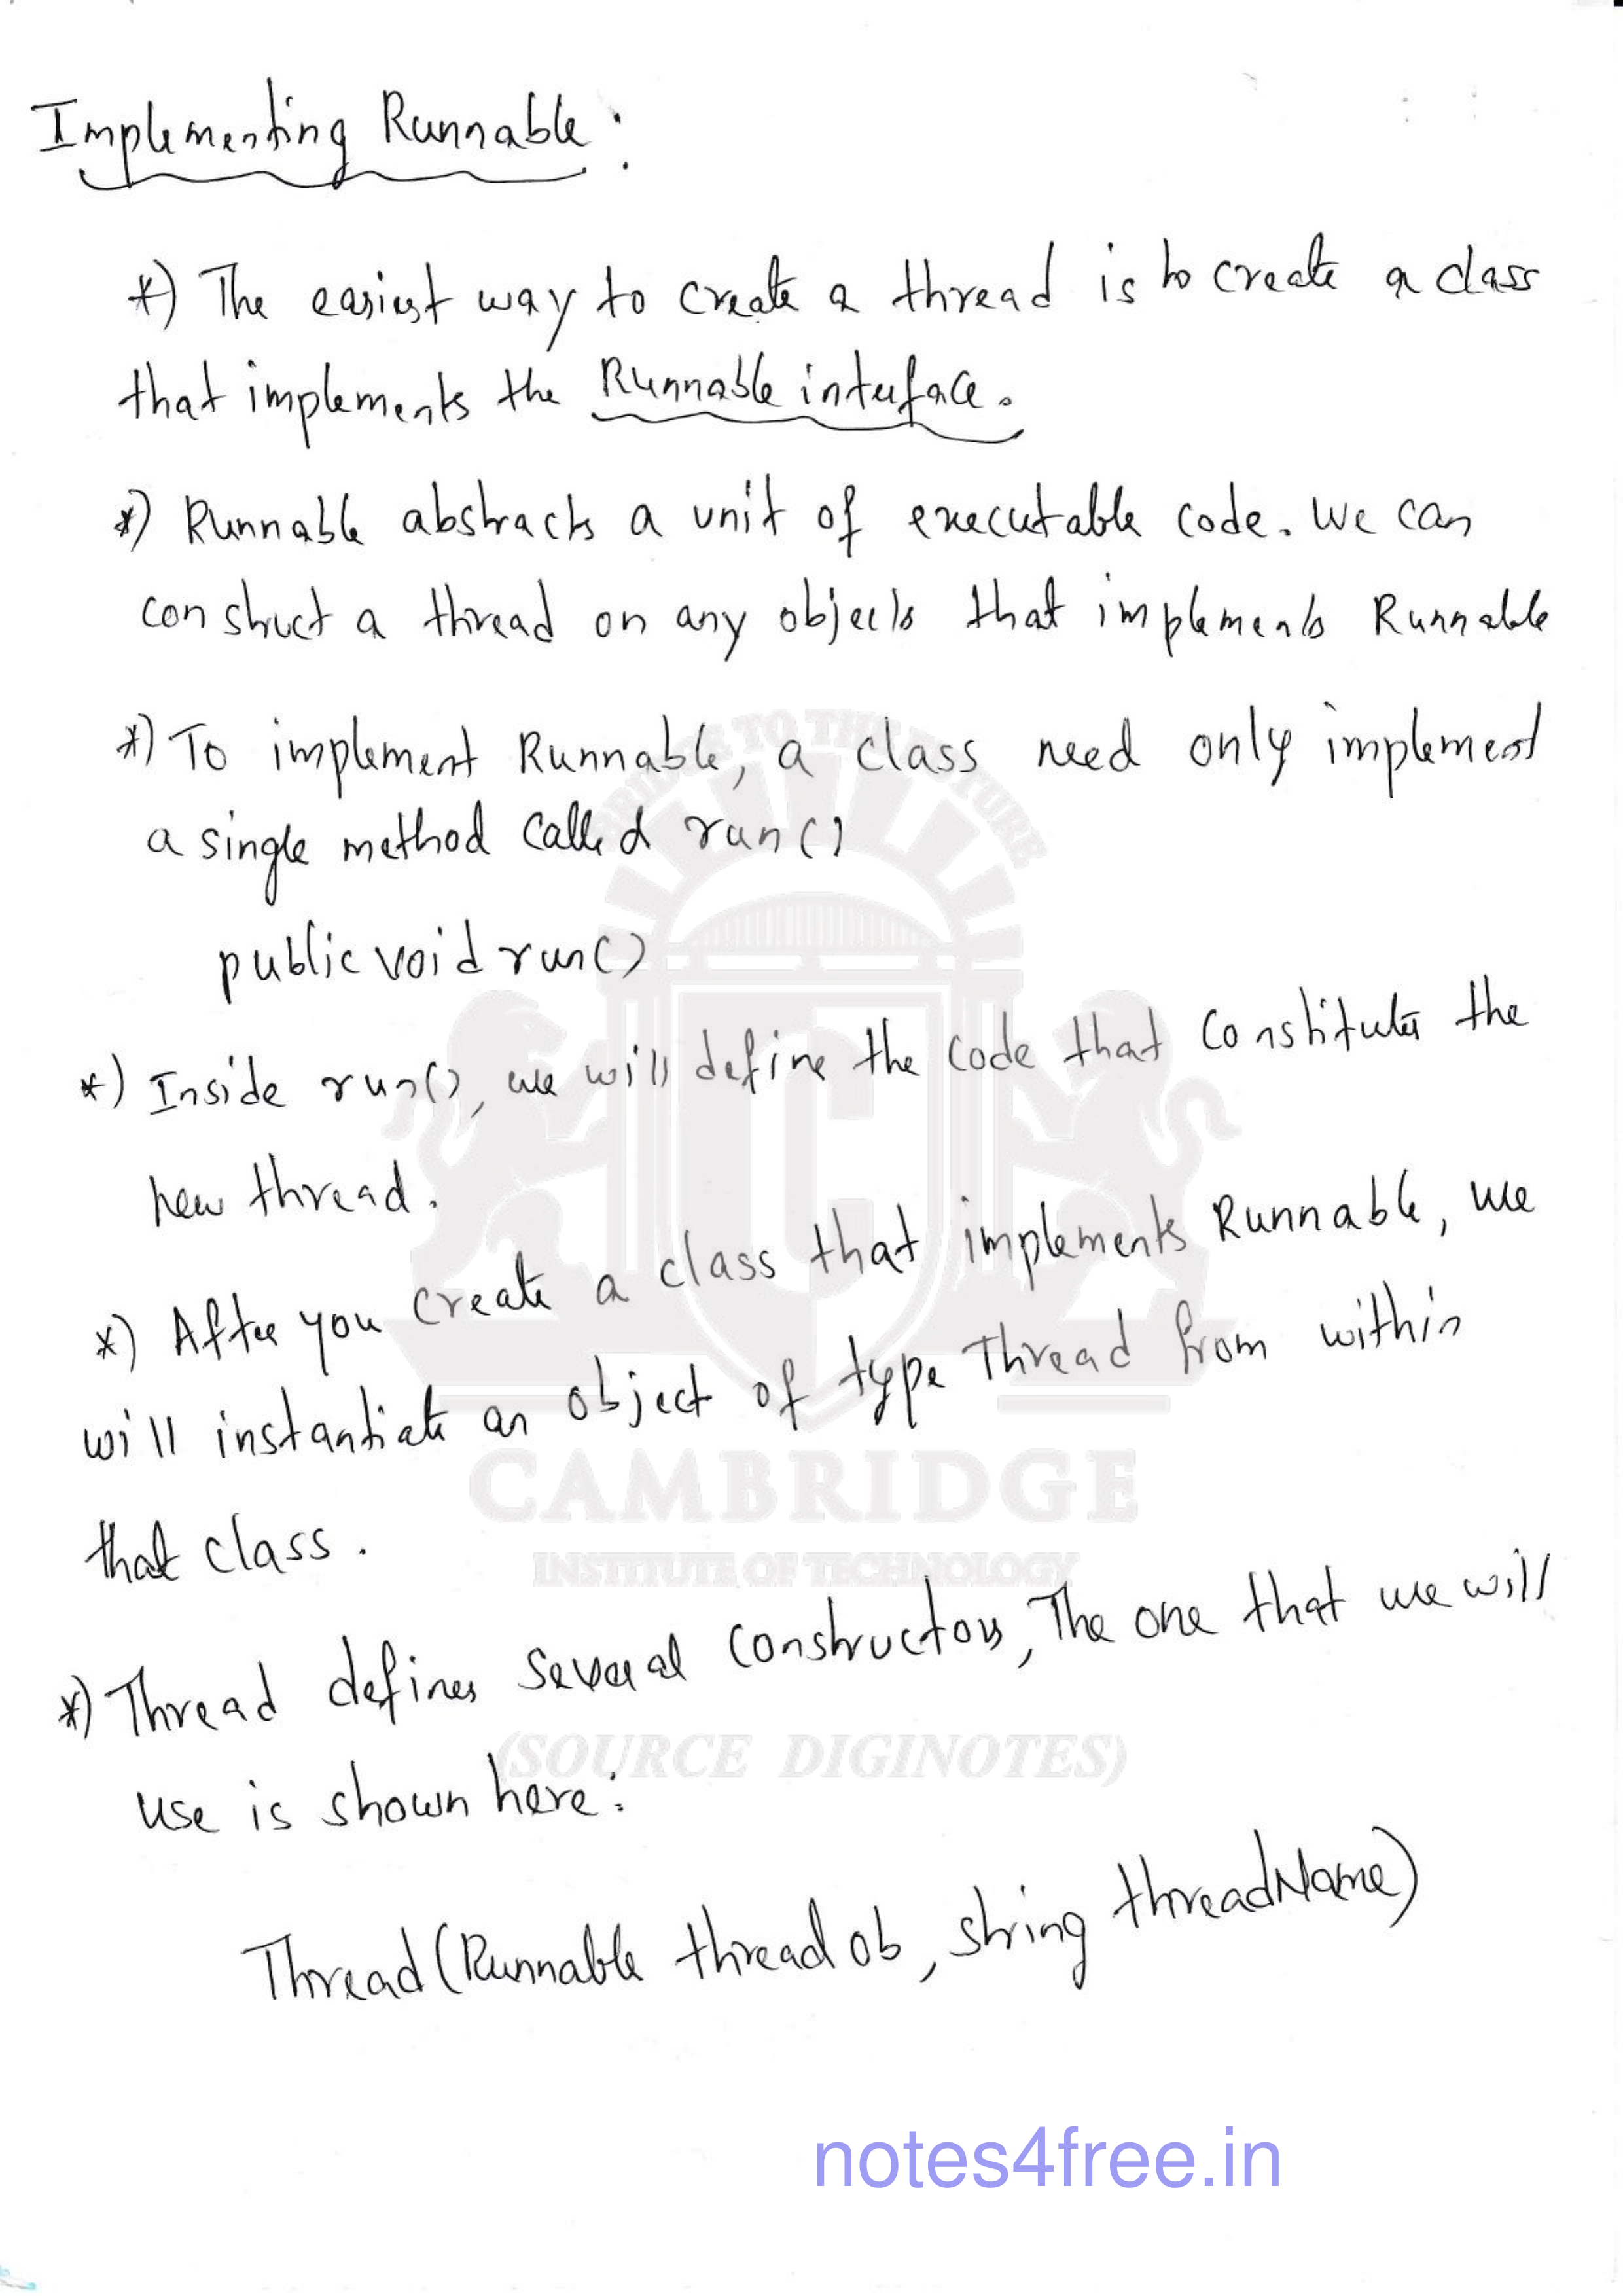 Implementing Runnable :
*) The easiest way to create a thread is to create a class
that implements the Runnable interface.
*) Runnable abstracts a unit of executable code. We can
construct a thread on any objects that implements Runnable
*) To implement Runnable, a class need only implement
a single method called run()
public void run()
*) Inside run(), we will define the code that constitutes the
new thread.
*) After you create a class that implements Runnable, we
will instantiate an object of type Thread from within
that class.
*) Thread defines several constructors, The one that we will
use is shown here:
Thread(Runnable threadob, string threadName)
CAMBRIDGE
INSTITUTE OF TECHNOLOGY
(SOURCE DIGINOTES)
notes4free.in